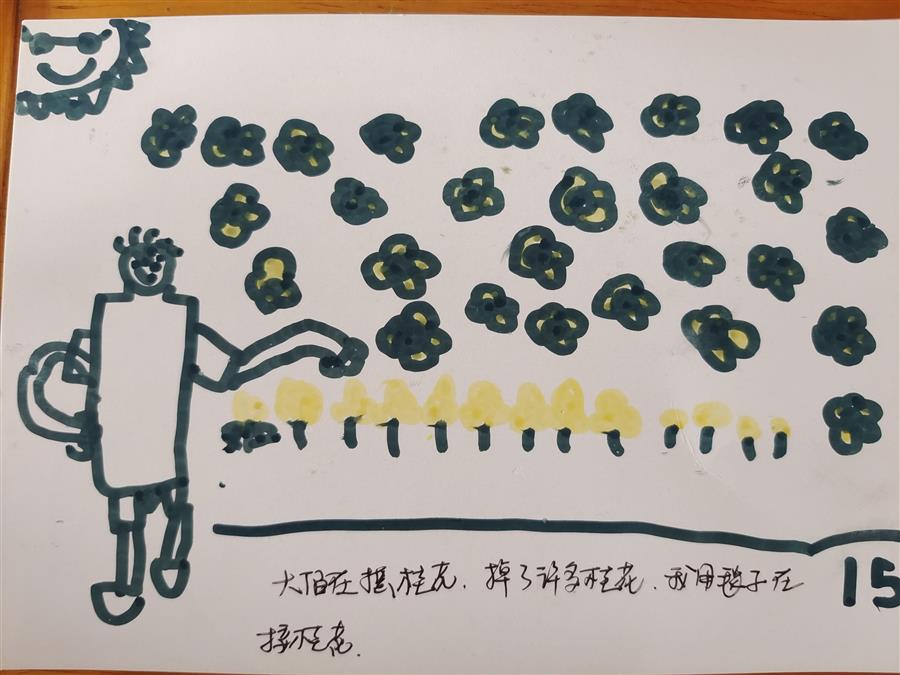 大伯在摇桂花，掉了许多桂花，我用袋子在
接桂花.
15